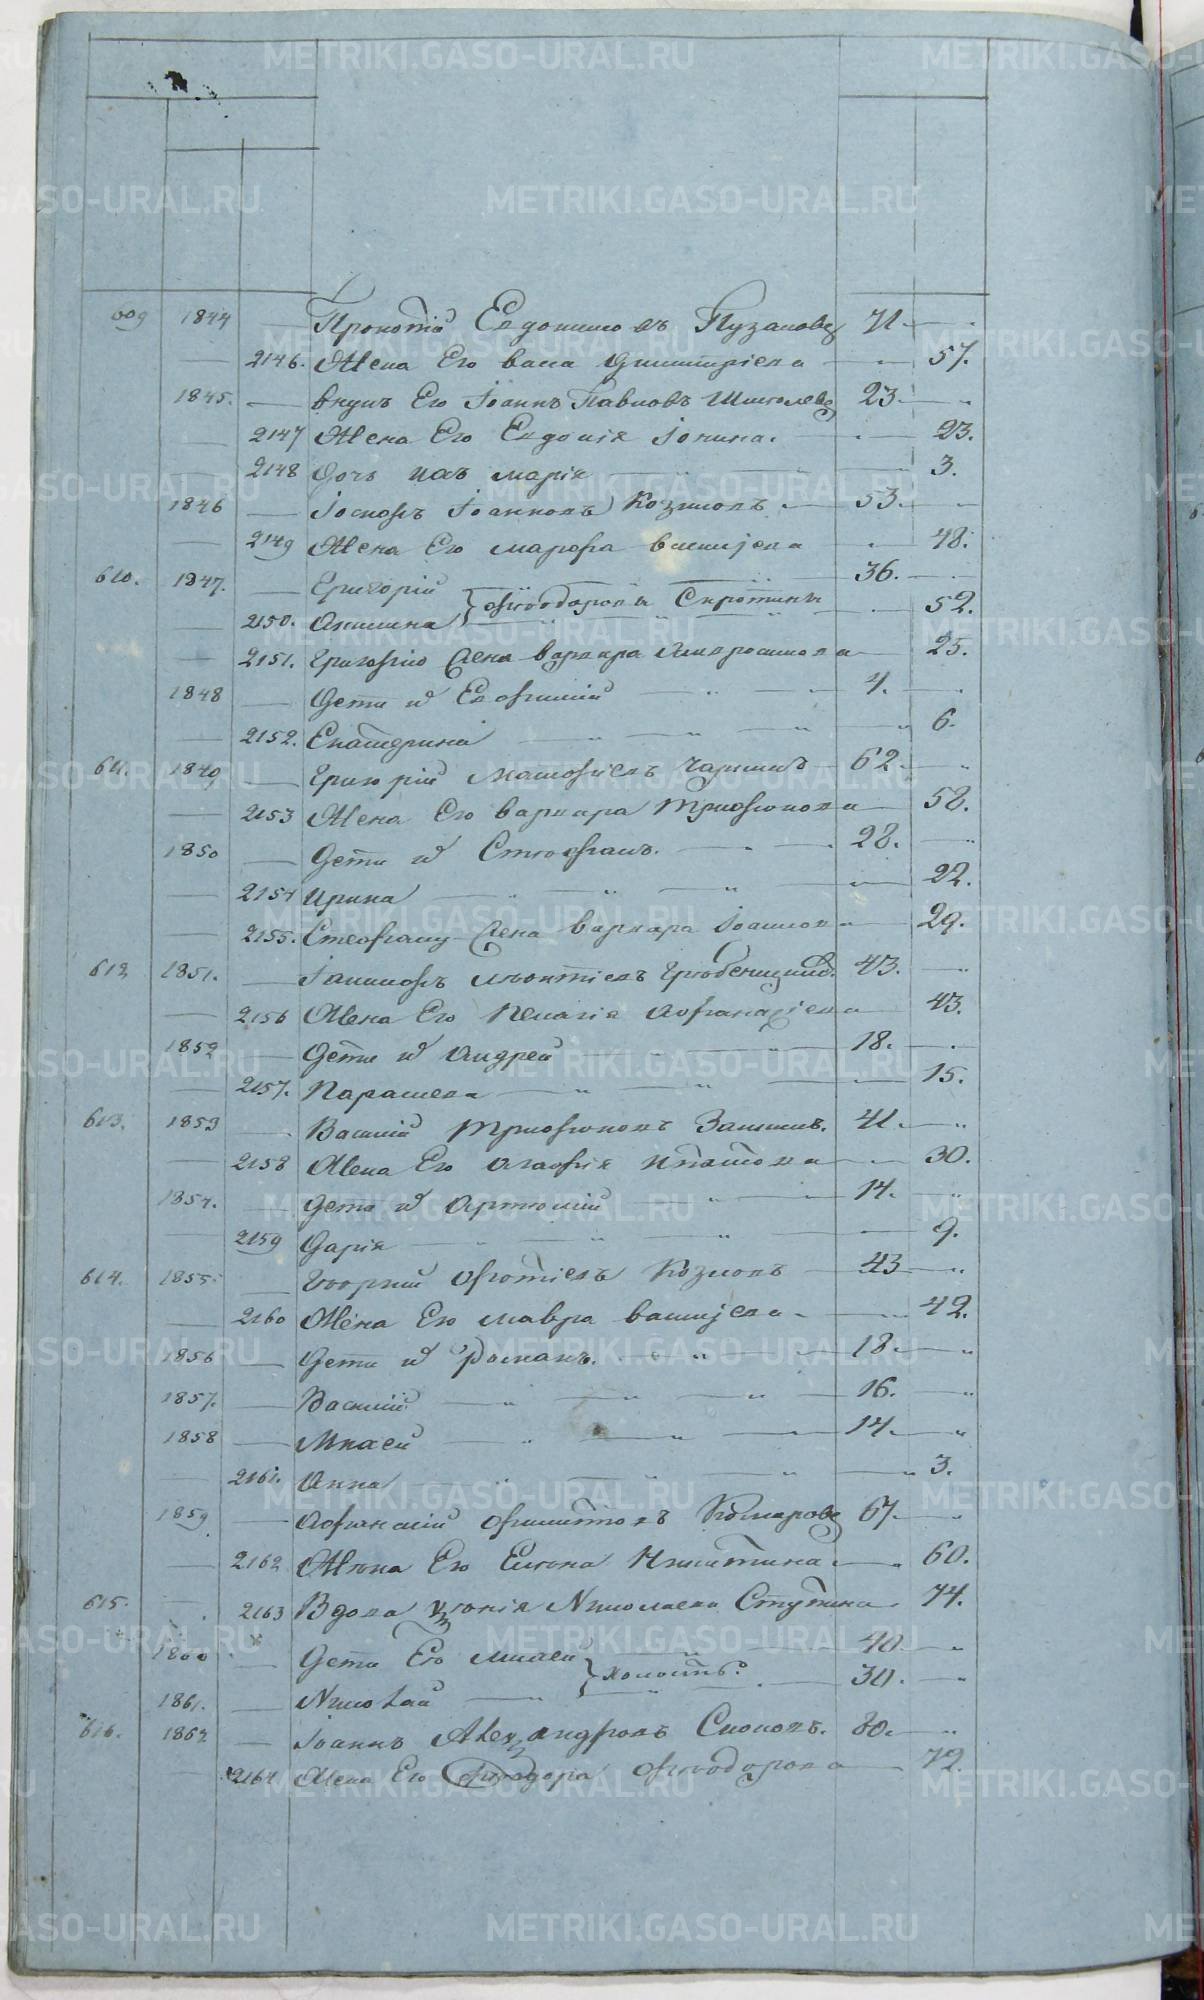 609 1844 — Прокопій Евдокимовъ Пузановъ 71. —
— 2146. Жена Его Васса Димитріева — 57.
1845. — Внукъ Его Іоаннъ Павловъ 23. —
— 2147 Жена Его Евдокія Іонина. — 23.
— 2148 Дочь ихъ Марія — 3.
1846 — Іосифъ Іоанновъ Козловъ. — 53. —
— 2149 Жена Его Марфа Васильева — 48.
610. 1847. — Григорій 36. —
Ѳеодоровы
2150. Акилина — 52.
— 2151. Григорію Жена Варвара Амвросимова — 25.
1848 — Дети и Евфимій — 4.
— 2152. Екатерина — 6.
611. 1849 — Григорій Матѳіевъ 62. —
— 2153 Жена Его Варвара Трифонова — 58.
1850 — Дети и Стефанъ. — 28. —
— 2154 Ирина — 22.
— 2155. Стефану Жена Варвара Іоаннова — 29.
612 1851. — 43. —
— 2156 Жена Его Пелагія Аѳанасіева — 43.
1852 — Дети и Андрей — 18. —
— 2157. Параскева — 15.
613. 1853 — Василій Трифоновъ 41. —
— 2158 Жена Его Агафія Ипатова — 30.
1854. — Дети и Артемій — 14. —
— 2159 Дарія — 9.
614. 1855 — Георгій Фотіевъ Козловъ — 43 —
— 2160 Жена Его Мавра Васильева — 42.
1856 — Дети и Романъ. — 18. —
1857. — Василій — 16. —
1858 — Мокей — 14. —
— 2161. Анна — 3.
1859 — Аѳанасій Филиповъ Комаровъ 67. —
— 2162 Жена Его Елена Никитина — 60.
615. — 2163 Вдова Николаева Ступина. 74.
1860 — Дети Ея 40 —
холосты.
1861. — Николай — 30. —
616. 1862 — Іоаннъ Александровъ 80. —
— 2164 Жена Его Ѳеодора Ѳеодорова — 72.
METRIKI.GASO-URAL.RU